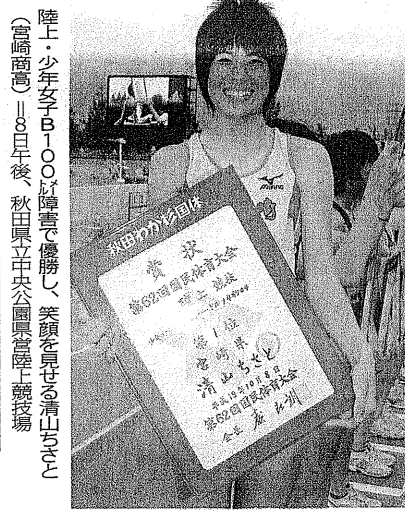 陸上・少年女子B100㍍障害で優勝し、笑顔を見せる清山ちさと
(宮崎商高)=8日午後、秋田県立中央公園県営陸上競技場
秋田わか杉国体
賞状
第62回国民体育大会
陸上競技
第1位
宮崎県
清山ちさと
平成19年10月8日
第62回国民体育大会
会長
MIZUNO